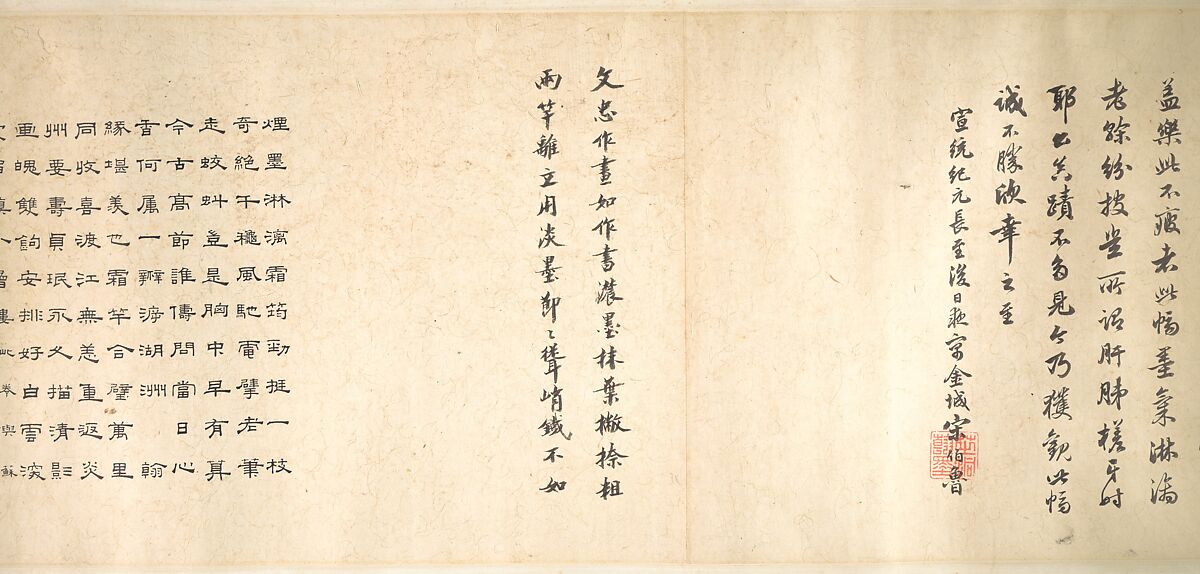 蓋樂此不疲者此幅墨氣淋漓
老餘紛披豈所謂肝肺槎牙時
耶公真蹟不多見今乃獲觀此幅
誠不勝欣幸之至
宣統紀元長至後日敬寫金城宋伯魯
文忠作畫如作書濃墨抹葉撇捺粗
兩竿離立用淡墨節〻聳峭鐵不如
煙墨淋漓霜筠勁挺一枝
奇絕千穐風馳電掣老筆
走蛟虯豈是胸中早有算
今古高節誰儔問當日心
香何属一瓣游湖洲翰
緣堪羨也霜竿合璧萬里
同收喜渡江無恙重返炎
州要壽貞珉永久描清影
畫媿雙鉤安排好白雲深